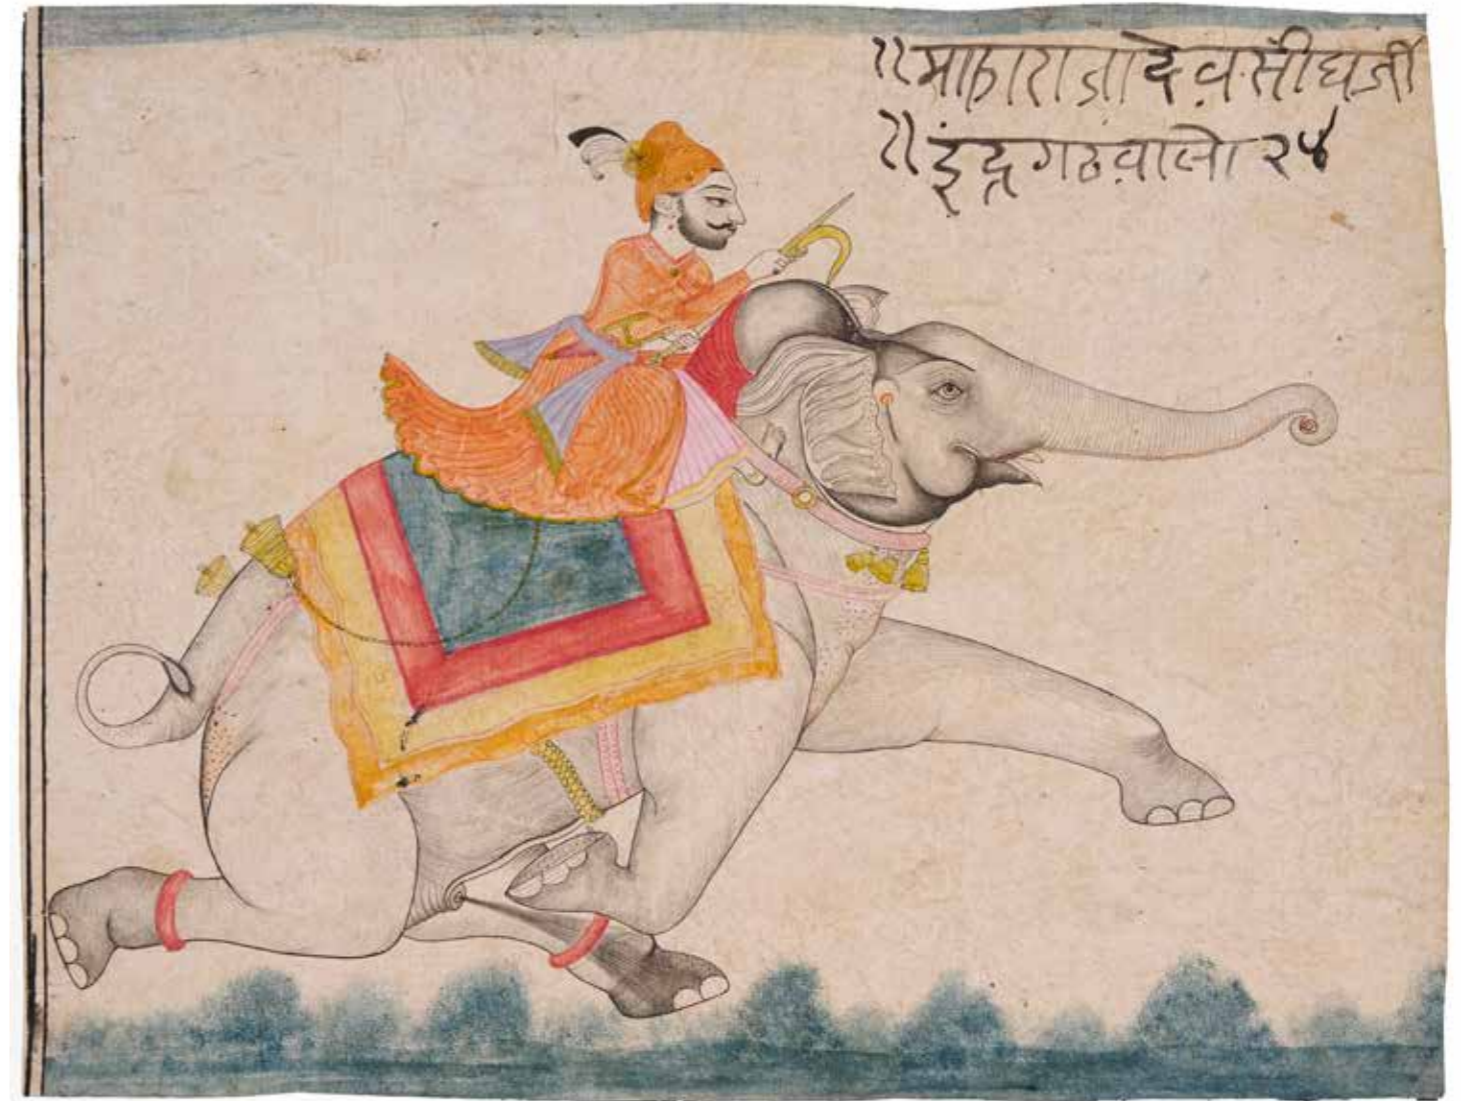 ॥माहाराजा देवसींघजी
॥इंद्रगढवालो २४